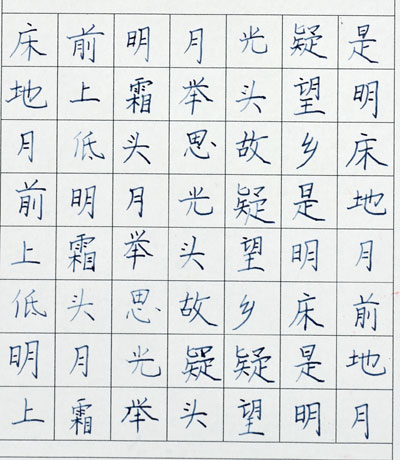 床前明月光疑是
地上霜举头望明
月低头思故乡床
前明月光疑是地
上霜举头望明月
低头思故乡床前
明月光疑疑是地
上霜举头望明月